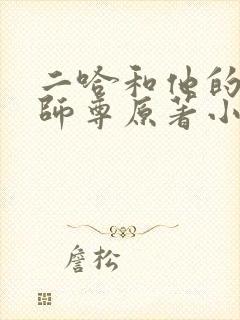 二哈和他的
師尊原著小
詹松